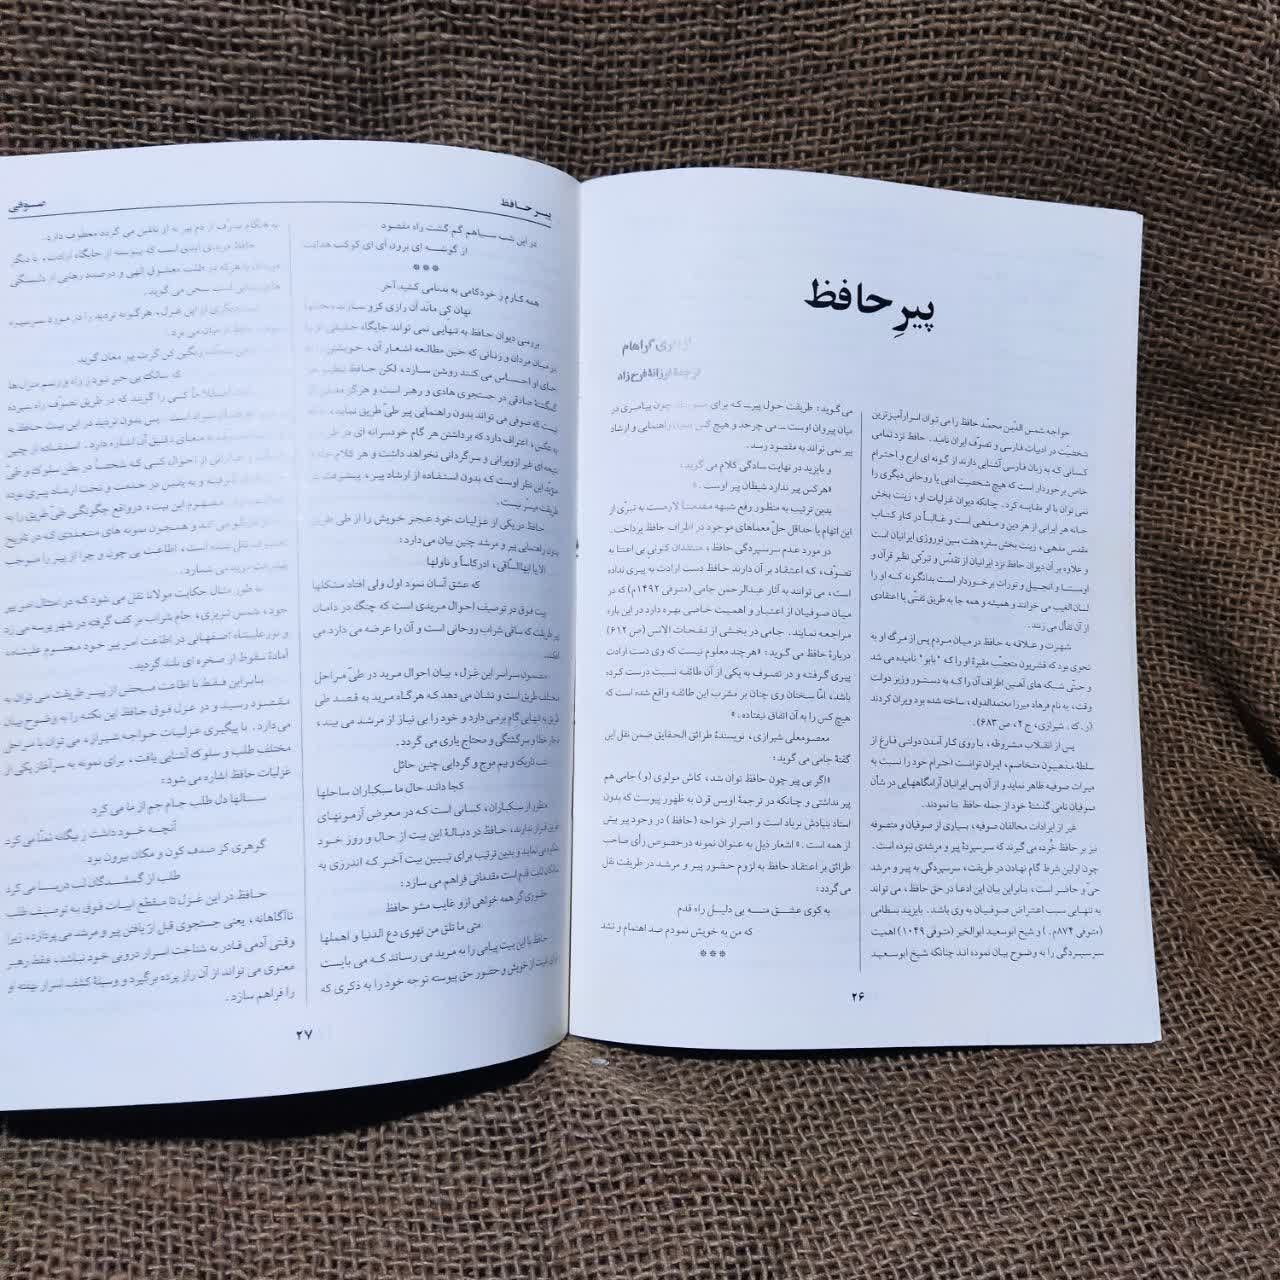 پیرِ حافظ
از تری گراهام
ترجمهٔ فرزانهٔ فرح‌زاد
خواجه شمس الدّین محمّد حافظ را می توان اسرارآمیزترین
شخصیّت در ادبیات فارسی و تصوّف ایران نامید. حافظ نزد تمامی
کسانی که به زبان فارسی آشنایی دارند از گونه ای ارج و احترام
خاص برخوردار است که هیچ شخصیت ادبی یا روحانی دیگری را
نمی توان با او مقایسه کرد. چنانکه دیوان غزلیات او، زینت بخش
خانه هر ایرانی از هر دین و مذهبی است و غالباً در کنار کتاب
مقدس مذهبی، زینت بخش سفره هفت سین نوروزی ایرانیان است
و علاوه بر آن دیوان حافظ نزد ایرانیان از تقدّس و تبرّکی نظیر قرآن و
اوستا و انجیل و تورات برخوردار است بدانگونه که او را
لسان الغیب می خوانند و همیشه و همه جا به طریق تفنّنی یا اعتقادی
از آن تفأل می زنند.
شهرت و علاقه به حافظ در میان مردم پس از مرگ او به
نحوی بود که قشریون متعصّب مقبرهٔ او را که "بابو" نامیده می شد
و حتّی شبکه های آهنین اطراف آن را که به دستور وزیر دولت
وقت، به نام فرهاد میرزا معتمدالدوله، ساخته شده بود ویران کردند
(ر. ک. شیرازی، ج ۲، ص ۶۸۳).
پس از انقلاب مشروطه، با روی کار آمدن دولتی فارغ از
سلطهٔ مذهبیون متخاصم، ایران توانست احترام خود را نسبت به
میراث صوفیه ظاهر نماید و از آن پس ایرانیان آرامگاههایی در شأن
صوفیان نامی گذشتهٔ خود از جمله حافظ بنا نمودند.
غیر از ایرادات مخالفان صوفیه، بسیاری از صوفیان و متصوفه
نیز بر حافظ خُرده می گیرند که سرسپردهٔ پیر و مرشدی نبوده است.
چون اولین شرط گام نهادن در طریقت، سرسپردگی به پیر و مرشد
حیّ و حاضر است، بنابراین بیان این ادعا در حق حافظ، می تواند
به تنهایی سبب اعتراض صوفیان به وی باشد. بایزید بسطامی
(متوفی ۸۷۴م.) و شیخ ابوسعید ابوالخیر (متوفی ۱۰۴۹) اهمیت
سرسپردگی را به وضوح بیان نموده اند چنانکه شیخ ابوسعید
می گوید: طریقت حول پیرــ که برای چون پیامبری در
میان پیروان اوست ــ می چرخد و هیچ کس بدون راهنمایی و ارشاد
پیر نمی تواند به مقصود رسد.
و بایزید در نهایت سادگی کلام می گوید،
«هر کس پیر ندارد شیطان پیر اوست.»
بدین ترتیب به منظور رفع شبهه مقدمتاً لازمست به تبرّی از
این اتهام یا حداقل حلّ معماهای موجود در اطراف حافظ پرداخت.
در مورد عدم سرسپردگی حافظ، منتقدان کنونی بی اعتنا به
تصوّف، که اعتقاد بر آن دارند حافظ دست ارادت به پیری نداده
است، می توانند به آثار عبدالرحمن جامی (متوفی ۱۴۹۲م) که در
میان صوفیان از اعتبار و اهمیت خاصی بهره دارد در این باره
مراجعه نمایند. جامی در بخشی از نفحات الانس (ص ۶۱۲)
دربارهٔ حافظ می گوید: «هر چند معلوم نیست که وی دست ارادت
پیری گرفته و در تصوف به یکی از آن طائفه نسبت درست کرده
باشد، امّا سخنان وی چنان بر مشرب این طائفه واقع شده است که
هیچ کس را به آن اتفاق نیفتاده.»
معصومعلی شیرازی، نویسندهٔ طرائق الحقایق ضمن نقل این
گفتهٔ جامی می گوید:
«اگر بی پیر چون حافظ توان شد، کاش مولوی (و) جامی هم
پیر نداشتی و چنانکه در ترجمهٔ اویس قرن به ظهور پیوست که بدون
استاد بنیادش برباد است و اصرار خواجه (حافظ) در وجود پیر بیش
از همه است.» اشعار ذیل به عنوان نمونه درخصوص رأی صاحب
طرائق بر اعتقاد حافظ به لزوم حضور پیر و مرشد در طریقت نقل
می گردد:
به کوی عشق منه بی دلیل راه قدم
که من به خویش نمودم صد اهتمام و نشد
***
۲۶
پیر حافظ
صوفی
در این شب سیاهم گم گشت راه مقصود
از گوشه ای برون آی ای کوکب هدایت
***
همه کارم ز خودکامی به بدنامی کشید آخر
نهان کی ماند آن رازی کزو سازند محفلها
بررسی دیوان حافظ به تنهایی نمی تواند جایگاه حقیقی او را
در میان مردان و زنانی که حین مطالعه اشعار آن، خویشتن را به
جای او احساس می کنند روشن سازد، لکن حافظ
گمگشتهٔ صادقی در جستجوی هادی و رهبر است و هرگز
نیست که صوفی می تواند بدون راهنمایی پیر طیّ طریق نماید،
به عکس، اعتراف دارد که برداشتن هر گام خودسرانه ای در
نتیجه ای غیر از ویرانی و سرگردانی نخواهد داشت و هر کلام
مؤیّد این نظر است که بدون استفاده از ارشاد پیر، پیشرفت
طریقت میسّر نیست.
حافظ در یکی از غزلیات خود عجز خویش را از طی طریق
بدون راهنمایی پیر و مرشد چنین بیان می دارد:
الا یا ایهاالساّقی، ادرکاساً و ناولها
که عشق آسان نمود اول ولی افتاد مشکلها
بیت فوق در توصیف احوال مریدی است که چنگ در دامان
پیر طریقت که ساقی شراب روحانی است و آن را عرضه می دارد می
افکند.
مضمون سراسر این غزل، بیان احوال مرید در طیّ مراحل
مختلف طریق است و نشان می دهد که هرگاه مرید به قصد طی
طریق به تنهایی گام برمی دارد و خود را بی نیاز از مرشد می بیند،
دچار خطا و سرگشتگی و محتاج یاری می گردد.
شب تاریک و بیم موج و گردابی چنین حائل
کجا دانند حال ما سبکباران ساحلها
منظور از سبکباران، کسانی است که در معرض آزمونهای
قرار ندارند، حافظ در دنبالهٔ این بیت از حال و روز خود
می نماید و بدین ترتیب برای تبیین بیت آخر که اندرزی به
سالکان ثابت قدم است مقدماتی فراهم می سازد:
حضوری گر همه خواهی ازو غایب مشو حافظ
متی ما تلق من تهوی دع الدنیا و اهملها
حافظ با این بیت پیامی را به مرید می رساند که می بایست
برای غیبت از خویش و حضور حق پیوسته توجه خود را به ذکری که
به هنگام تشرّف از دم پیر به او تلقین می گردد معطوب دارد.
حافظ مریدی ابدی است که پیوسته از جایگاه ارادت، با دیگر
مریدان یا هر که در طلب معشوق الهی و درصدد رهایی از دلبستگی
های است سخن می گوید.
بیت دیگری از این غزل، هرگونه تردید را در مورد سرسپردگی
حافظ از میان می برد.
سجّاده رنگین کن گرت پیر مغان گوید
که سالک بی خبر نبود ز راه و رسم منزل‌ها
اصطلاحاً کسی را گویند که در طریق تصوّف راه سپرده
است. پس بدون تردید در این بیت حافظ به
معنای دقیق آن اشاره دارد. استفاده از چنین
از احوال کسی که شخصاً در بطن سلوک و طیّ
و به یقین در خدمت و تحت ارشاد پیری بوده
مفهوم این بیت، درواقع چگونگی طیّ طریق را به
می کند و همچون نمونه های متعددی که در تاریخ
تصوّف نقل شده است، اطاعت بی چون و چرا از پیر را موجب
پیشرفت مرید می شمارد.
به طور مثال حکایت مولانا نقل می شود که در امتثال امر پیر
خود، شمس تبریزی، جام شراب بر کف گرفته در شهر پرسه می زد
و نورعلیشاه اصفهانی در اطاعت امر پیر خود معصوم علیشاه
آمادهٔ سقوط از صخره ای بلند گردید.
بنابراین فقط با اطاعت محض از پیر طریقت می توان به
مقصود رسید و در غزل فوق حافظ این نکته را به وضوح بیان
می دارد. با پیگیری غزلیات خواجه شیراز، می توان با مراحل
مختلف طلب و سلوک آشنایی یافت، برای نمونه به سرآغاز یکی از
غزلیات حافظ اشاره می شود:
سالها دل طلب جام جم از ما می کرد
آنچه خود داشت ز بیگانه تمنّا می کرد
گوهری کز صدف کون و مکان بیرون بود
طلب از گمشدگان لب دریا می کرد
حافظ در این غزل تا مقطع ابیات فوق به توصیف طلب
ناآگاهانه، یعنی جستجوی قبل از یافتن پیر و مرشد می پردازد، زیرا
وقتی آدمی قادر به شناخت اسرار درونی خود نباشد، فقط رهبر
معنوی می تواند از آن راز پرده برگیرد و وسیلهٔ کشف اسرار نهفته او
را فراهم سازد.
۲۷